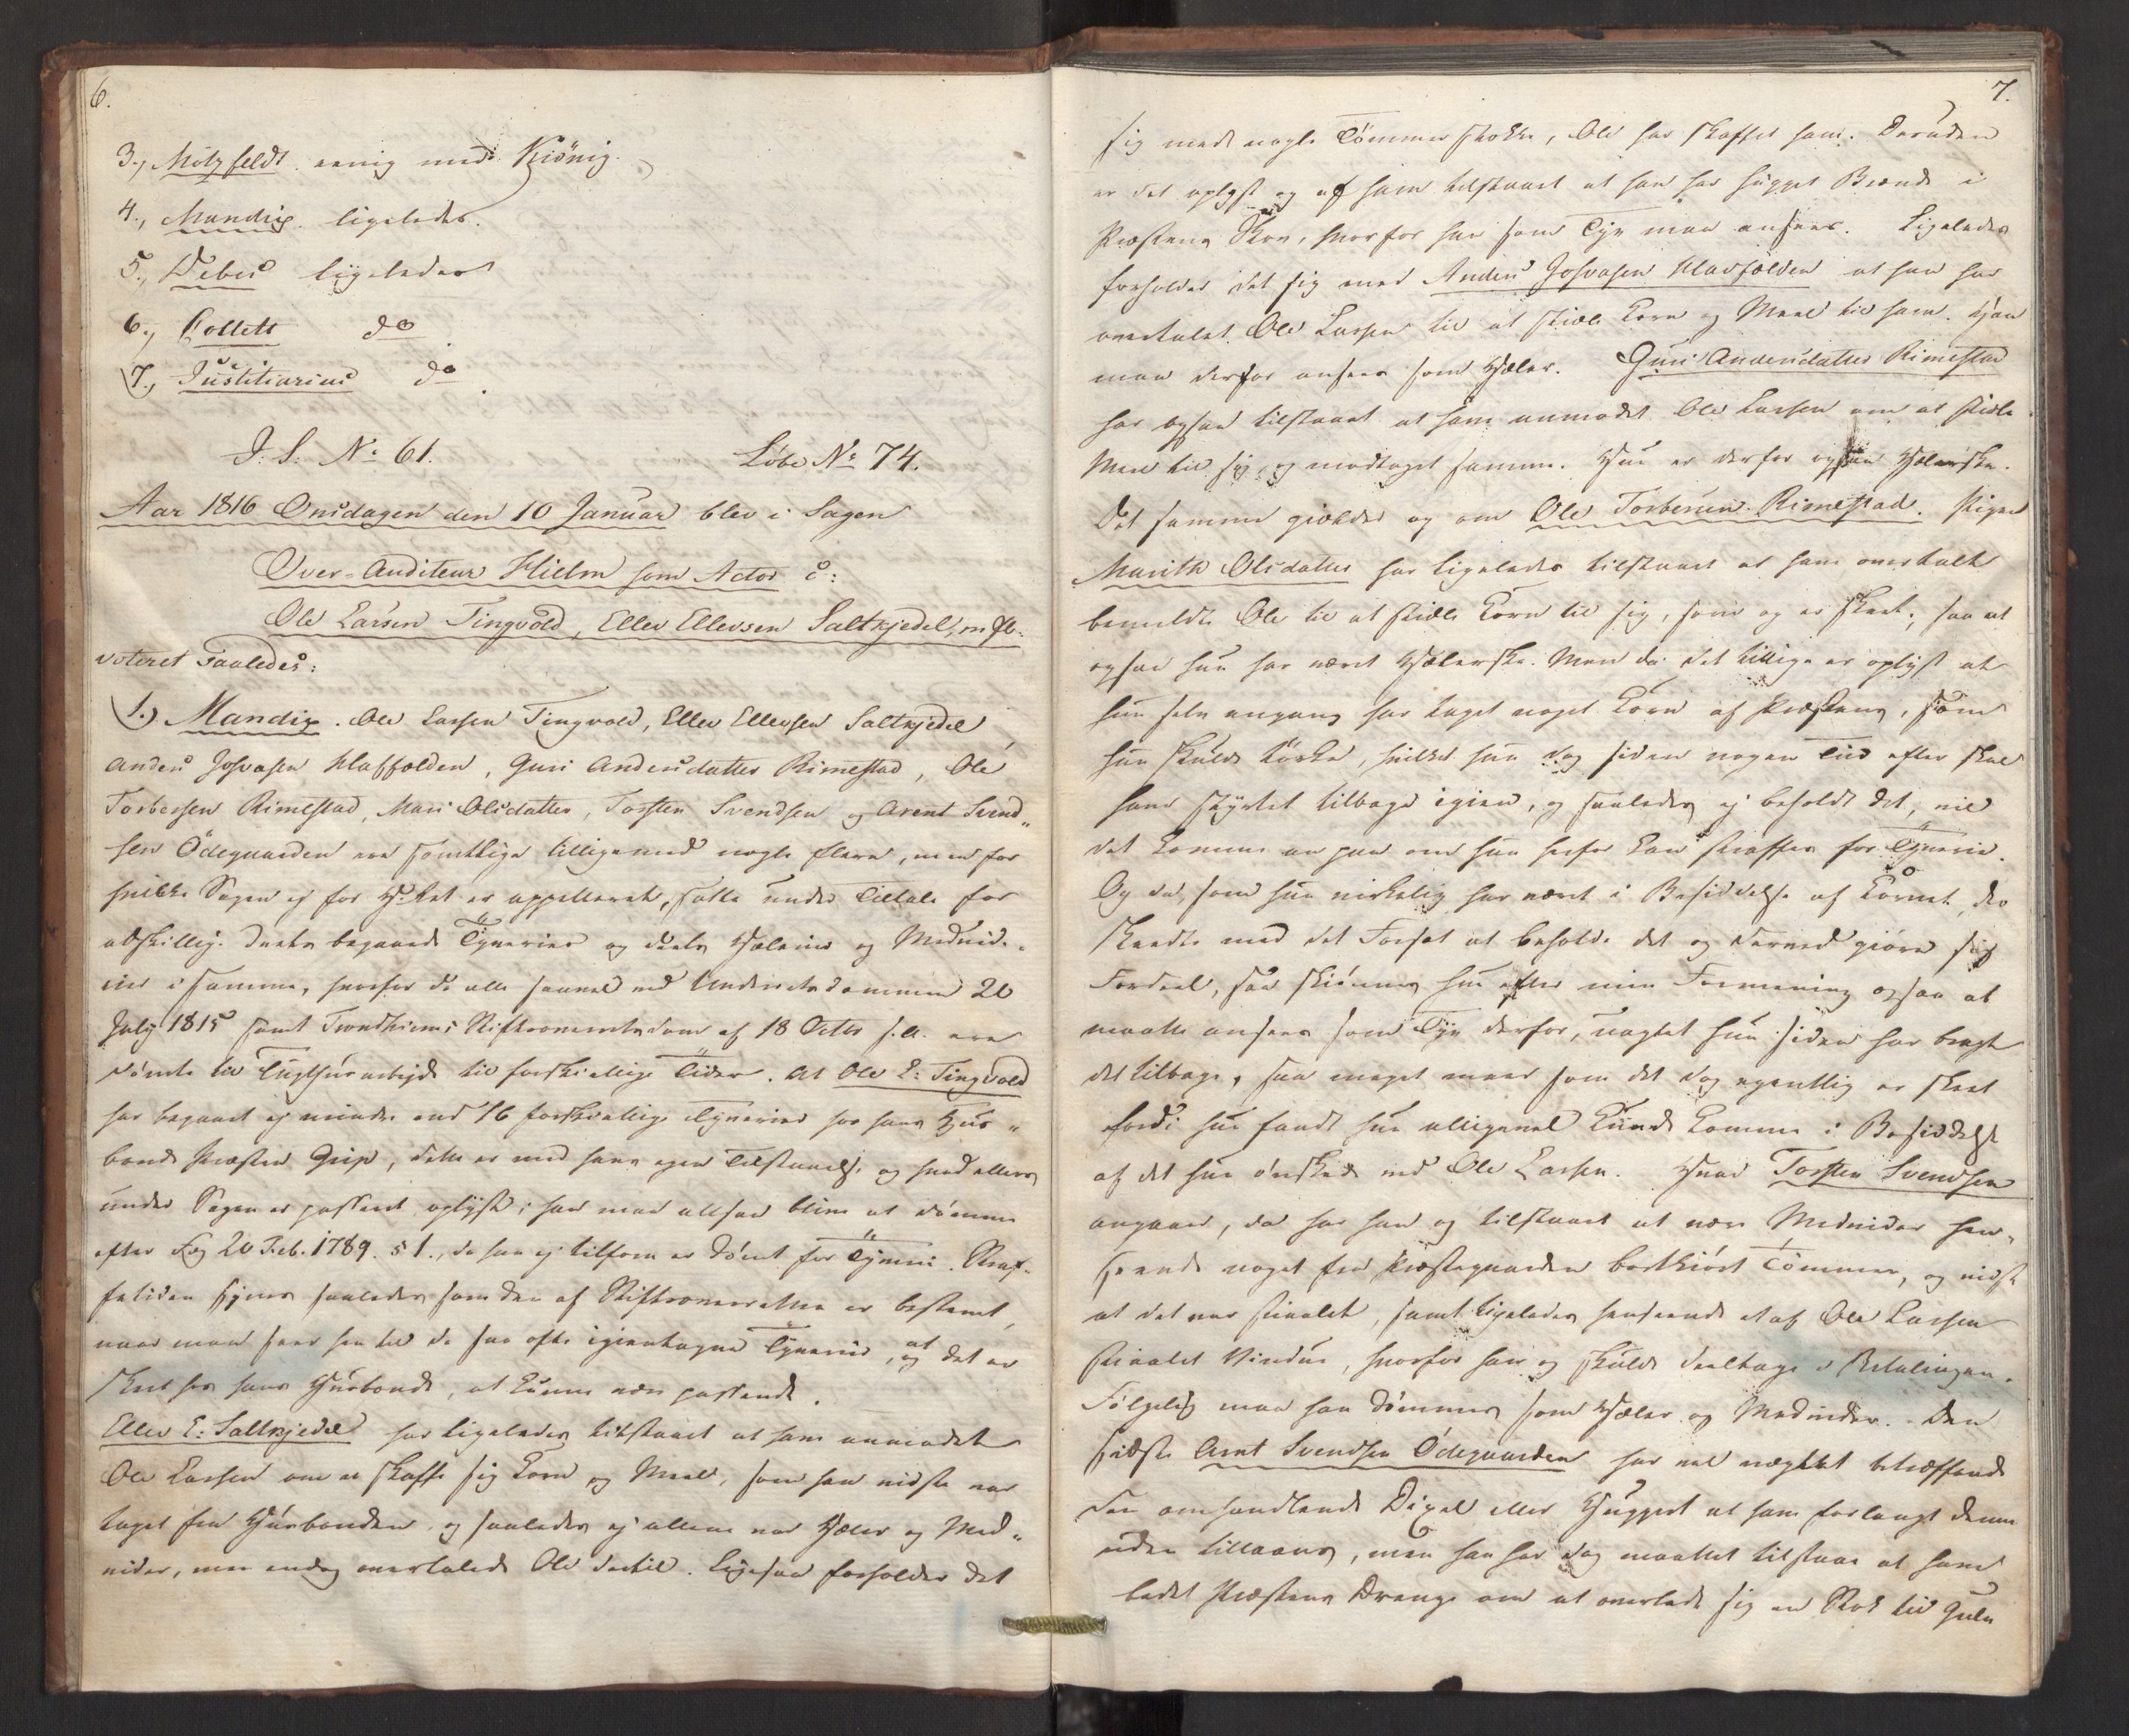 6.
3., Motzfeldt. eenig med Kiönig.
4., Mandix. ligeledes.
5., Debes ligeledes
6., Collett do
7., Justitiarius do.
J: S: No 61. Löbe No 74.
Aar 1816 Onsdagen den 10 Januar blev i Sagen
Over-Auditeur Hielm som Actor c:
Ole Larsen Tingvold, Ellev Ellevsen Saltkjedel, m. fl.
voteret saaledes:
1.) Mandix. Ole Larsen Tingvold, Ellev Ellevsen Saltkjedel,
Anders Joh̶asen Klaffolden, Guri Andersdatter Rimestad, Ole
Torbersen Rimestad, Mari Olsdatter, Torsten Svendsen og Arent Svend„
sen Ödegaarden ere samtlige tilligemed nogle flere, men for
hvilke Sagen ej for H:Ret er appelleret, satte under Tiltale for
adskillig. deels begaaede Tyverier og deels Hæleri og Medvide„
ri i samme, hvorfor de alle saavel ved Underretsdommen 20
July 1815 samt Trondhiems Stiftsoverretsdom af 18 Octbr s. A. ere
dömte til Tugthúsarbejde til forskiellige Tider. At Ole L: Tingvold
har begaaet ej mindre end 16 forskiellige Tyverier hos hans Hús„
bonde Præsten Grip, dette er med hans egen Tilstaaelse og hvad ellers
under Sagen er passeret oplyst; han maa altsaa blive at dömme
efter Fog 20 Feb. 1789. § 1., da han ej tilforn er dömt for Tyverie. Straf„
fetiden synes saaledes som den af Stiftsoverretten er bestemt,
naar man seer hen til de saa ofte igientagne Tyverier, og at det er
skeet hos hans Húsbonde, at kunne være passende.
Ellev E: Saltkjedel har ligeledes tilstaaet at have anmodet
Ole Larsen om at skaffe sig Korn og Meel, som han vidste var
taget fra Húsbonden og saaledes ej allene var Hæler og Med„
vider, men endog overtalede Ole dertil. Ligesaa forholder det
7.
sig med nogle Tömmerstokke, Ole har skaffet ham. Desuden
er det oplyst og af ham tilstaaet at han har hugget Brænde i
Præstens Skov, hvorfor han som Tyv maa ansees. Ligeledes
forholder det sig med Anders Klaffolden at han har
overtalet Ole Larsen til at stiæle Korn og Meel til ham. Han
maa derfor ansees som Hæler. Guri Andersdatter Rimestad
har ogsaa tilstaaet at have anmodet Ole Larsen om at stiæle
Meel til sig, og modtaget samme. Hun er derfor ogsaa Hælerske.
Det samme gielder og om Ole Torbersen Rimestad. Pigen
Marith Olsdatter har ligeledes tilstaaet at have overtalt
bemeldte Ole til at stiæle Korn til sig, som og er skeet; saa at
ogsaa hun har været Hælerske. Men da det tillige er oplyst at
hun selv engang har taget noget Korn af Præstens, som
hun skúlde törke, hvilket hun dog siden nogen Tid efter skal
have styrtet tilbage igien, og saaledes ej beholdt det, vil
det komme an paa om hun herfor kan straffes for Tyverie.
Og da, som hun virkelig har været i Besiddelse af Kornet, der
skeedte med det Forsæt at beholde det og derved giöre sig
Fordeel, saa skiönnes hun efter min Formening ogsaa at
maatte ansees som Tyv derfor, uagtet hun siden har bragt
det tilbage, saa meget meer som det dog egentlig er skeet
fordi hun fandt hun alligevel kunde komme i Besiddelse
af det hun önskede ved Ole Larsen. Hvad Torsten Svendsen
angaaer, da har han og tilstaaet at være Medvider hen„
seende noget fra Præstegaarden bortkiört Tömmer, og vidste
at det var stiaalet, samt ligeledes henseende et af Ole Larsen
stiaalet Vindue, hvorfor han og skulde deeltage i Betalingen.
Fölgelig maa han dömmes som Hæler og Medvider. Den
sidste Arnt Svendsen Ödegaarden har vel nægtet betræffende
den omhandlende Dixel eller Huggert at have forlangt denne
uden tillaans, men han har dog maattet tilstaae at have
bedet Præstens Dreng om at overlade sig en Stok til Gulv